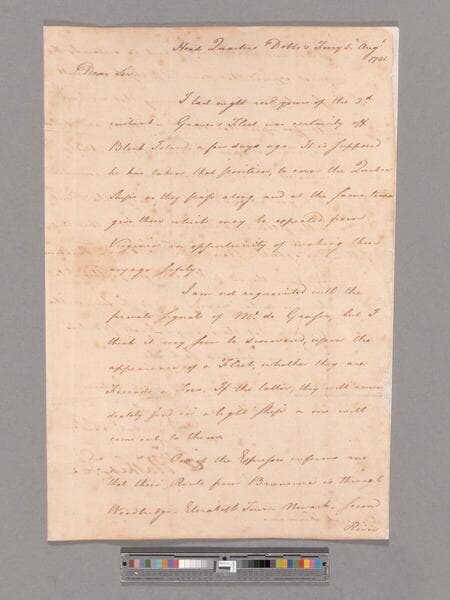 Head Quarters Dobbs's Ferry 5. Augt
1781
Dear Sir
I last night recd yours of the 3d
instant. Graves's Fleet was certainly off
Block Island a few days ago. It is supposed
he has taken that position, to cover the Quebec
Ships as they pass along, and at the same time
give those which may be expected from
Virginia an opportunity of making their
voyage safely.
I am not acquainted with the
private signals of Mr. de Grasse, but I
think it very easy to discover, upon the
appearance of a Fleet, whether they are
Friends or Foes. If the latter, they will imme
diately send in a light Ship or one will
come out to them.
One of the Expresses informs me
that their Route from Brunswic is through
Woodbridge, Elizabeth Town, Newark, Second
River